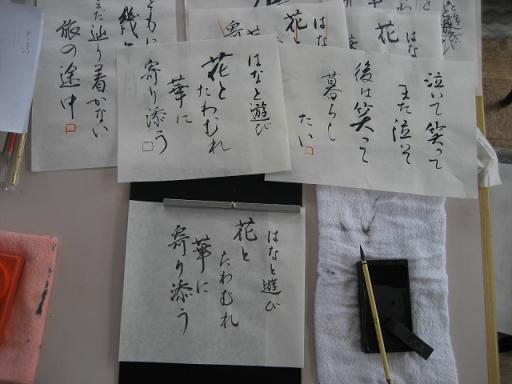 はなと遊び
花と
たわむれ
華に
寄り添う
泣いて笑って
また泣いて
後は笑って
暮らし
たい
ともに
幾
また辿り着かない
旅の途中
はな
花と
寄
はな
花と
はなと遊び
花と
たわむれ
華に
寄り添う